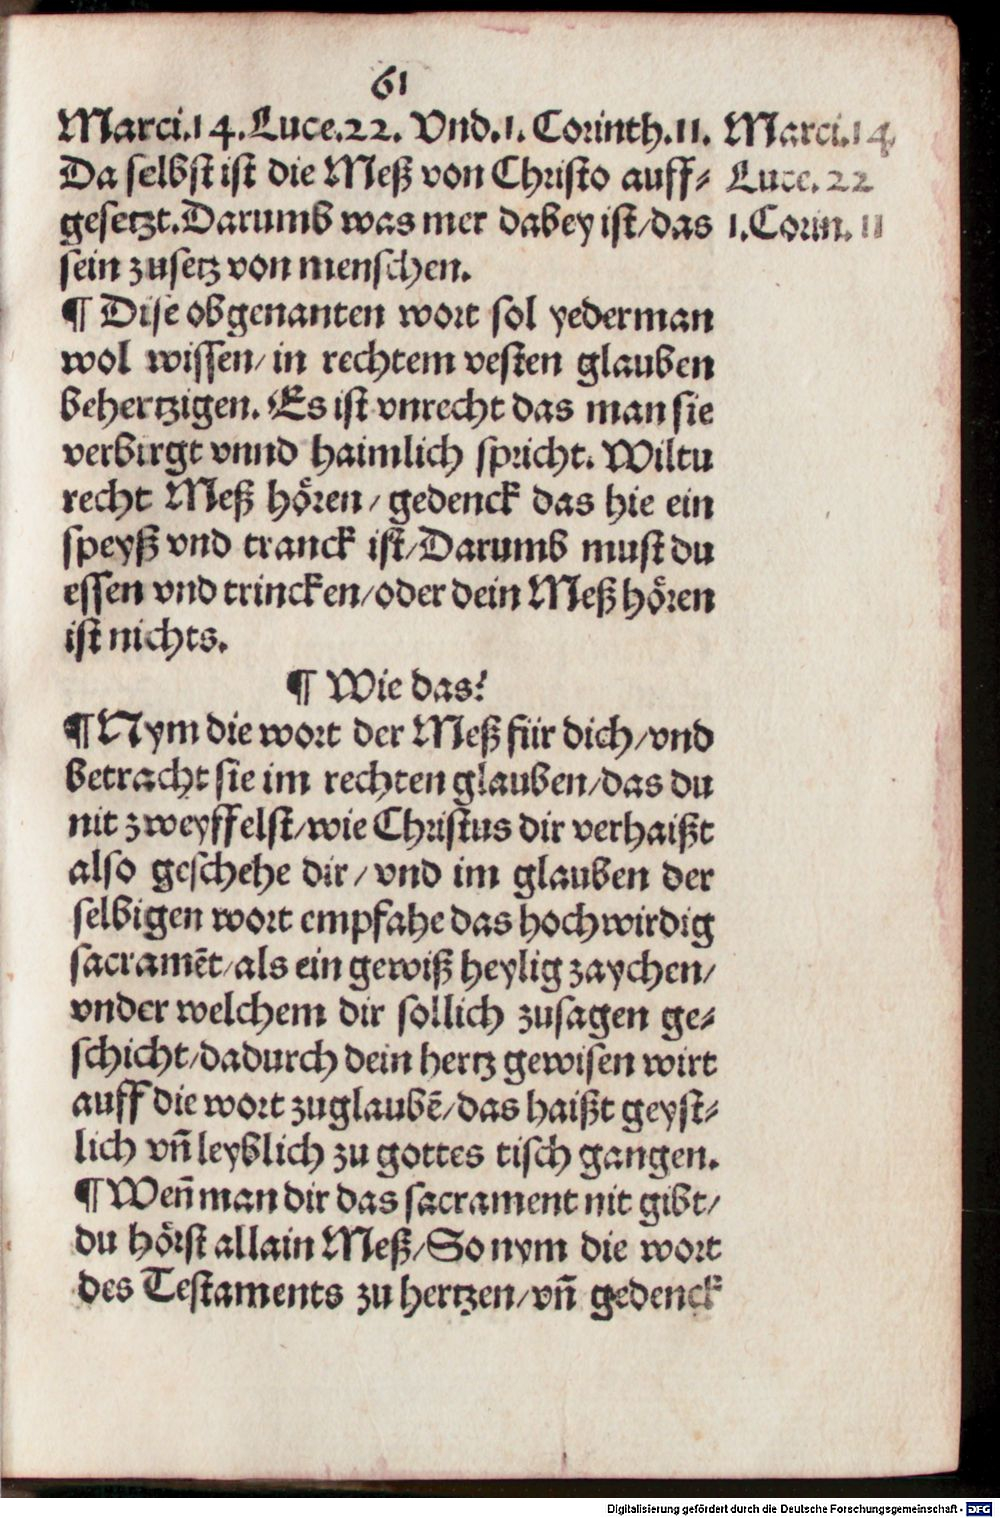 61
Marci.14.Luce.22. Vnd.1. Corinth.11. Marci.14
Da selbst ist die Meß von Christo auff⸗ Luce. 22
gesetzt.Darumb was mer dabey ist/das 1.Corin. 11
sein zusetz von menschen.
¶ Dise obgenanten wort sol yederman
wol wissen/in rechtem vesten glauben
behertzigen. Es ist vnrecht das man sie
verbirgt vnnd haimlich spricht. Wiltu
recht Meß hoͤren/gedenck das hie ein
speyß vnd tranck ist/Darumb must du
essen vnd trincken/oder dein Meß hoͤren
ist nichts.
¶ Wie das?
¶ Nym die wort der Meß für dich/vnd
betracht sie im rechten glauben/das du
nit zweyffelst/wie Christus dir verhaißt
also geschehe dir/vnd im glauben der
selbigen wort empfahe das hochwirdig
sacramẽt/als ein gewiß heylig zaychen/
vnder welchem dir sollich zusagen ge⸗
schicht/dadurch dein hertz gewisen wirt
auff die wort zuglaubẽ/das haißt geyst⸗
lich vñ leyblich zu gottes tisch gangen.
¶ Weñ man dir das sacrament nit gibt/
du hoͤrst allain Meß/So nym die wort
des Testaments zu hertzen/vñ gedenck
Digitalisierung gefördert durch die Deutsche Forschungsgemeinschaft - DFG